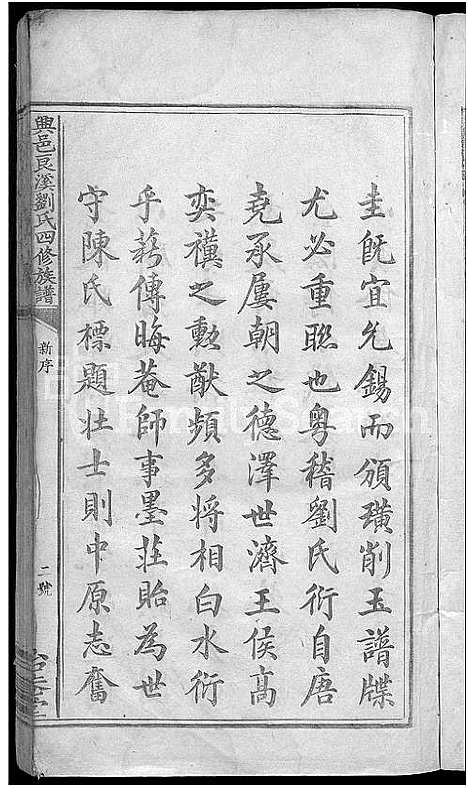 圭旣宜允錫而頒璜削玉譜牒
尤必重聮也粤稽劉氏衍自唐
堯承屢朝之德澤世濟王侯高
奕禩之勳猷頻多將相白水衍
乎藜傳晦菴師事墨莊貽為世
守陳氏標題壮士則中原志奮
興邑良溪劉氏四修族譜
新序
二號